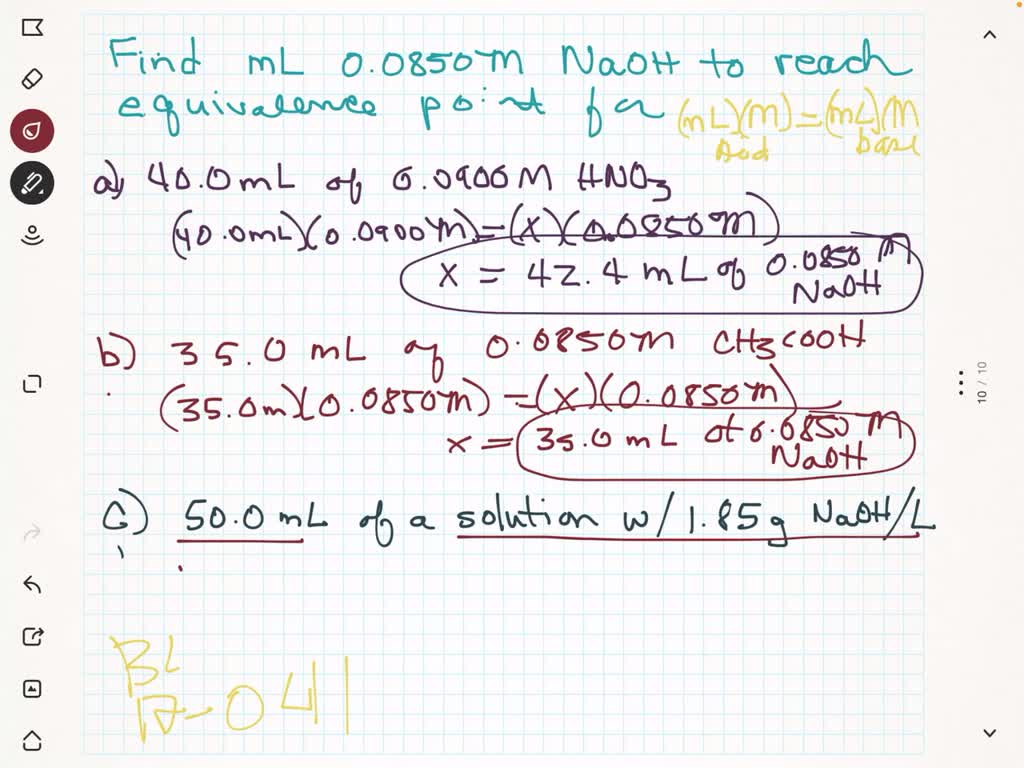 Find mL 0.0850M NaOH to reach
equivalence point for (mL)(M)=(mL)(M
Acid base
a) 40.0mL of 0.0900M HNO3
(40.0mL)(0.0900M)=(x)(0.0850M)
x = 42.4 mL of 0.0850 M
NaOH
b) 35.0 mL of 0.0850M CH3COOH
(35.0m)(0.0850M) =(x)(0.0850M)
x = 35.0 mL of 0.0850 M
NaOH
c) 50.0 mL of a solution w/ 1.85g NaOH/L
BL
17-041
10 / 10